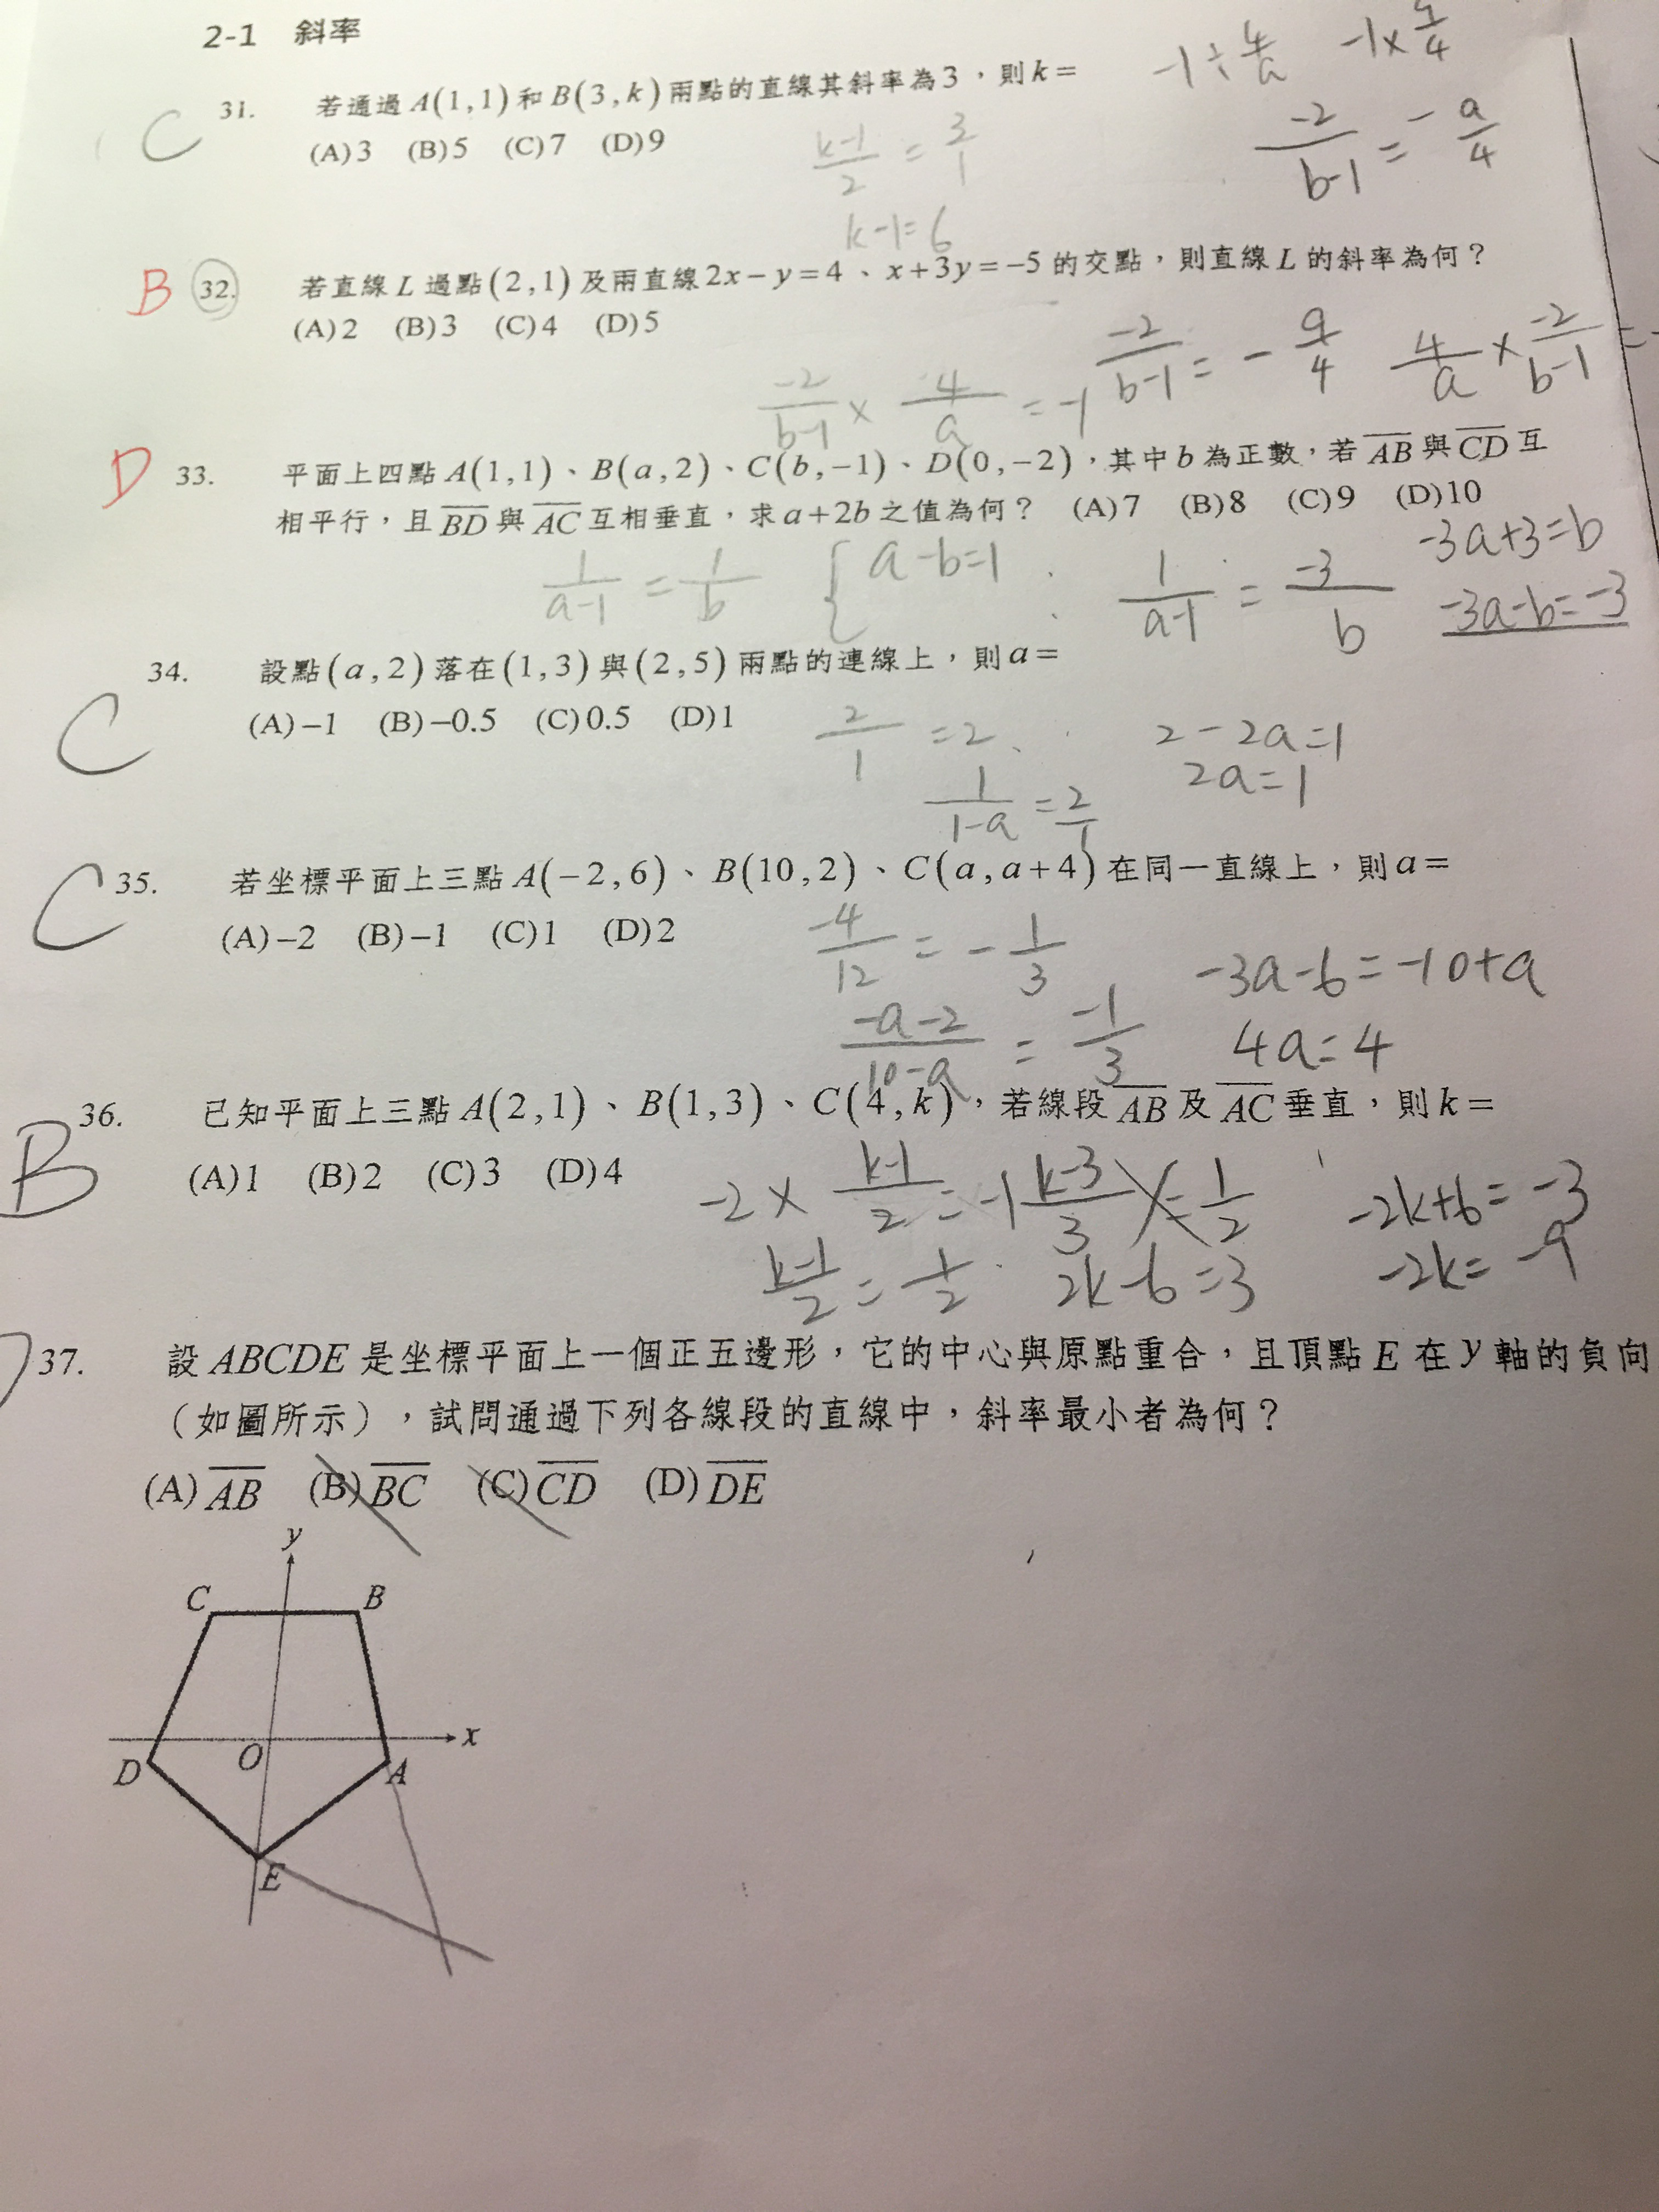 2-1 斜率
-1÷4/a -1×a/4
C 31. 若通過A(1,1)和B(3,k)兩點的直線其斜率為3，則k=
(A)3 (B)5 (C)7 (D)9
(k-1)/2 = 3/1
-2/(b-1) = -a/4
k-1=6
B 32. 若直線L過點(2,1)及兩直線2x-y=4、x+3y=-5的交點，則直線L的斜率為何？
(A)2 (B)3 (C)4 (D)5
-2/(b-1) = -a/4 4/a × -2/(b-1) =
-2/(b-1) × 4/a = -1
D 33. 平面上四點A(1,1)、B(a,2)、C(b,-1)、D(0,-2)，其中b為正數，若AB與CD互
相平行，且BD與AC互相垂直，求a+2b之值為何？ (A)7 (B)8 (C)9 (D)10
-3a+3=b
1/(a-1) = 1/b { a-b=1 1/(a-1) = -3/b -3a-b=-3
34. 設點(a,2)落在(1,3)與(2,5)兩點的連線上，則a=
C (A)-1 (B)-0.5 (C)0.5 (D)1
2/1 =2 2-2a=1
1/(1-a) = 2/1 2a=1
C 35. 若坐標平面上三點A(-2,6)、B(10,2)、C(a,a+4)在同一直線上，則a=
(A)-2 (B)-1 (C)1 (D)2
-4/12 = -1/3 -3a-6=-10+a
(-a-2)/(10-a) = -1/3 4a=4
B 36. 已知平面上三點A(2,1)、B(1,3)、C(4,k)，若線段AB及AC垂直，則k=
(A)1 (B)2 (C)3 (D)4
-2 × (k-1)/2 = -1 (k-3)/3 = 1/2 -2k+6=-3
(k-1)/2 = 1/2 2k-6=3 -2k=-9
37. 設ABCDE是坐標平面上一個正五邊形，它的中心與原點重合，且頂點E在y軸的負向
（如圖所示），試問通過下列各線段的直線中，斜率最小者為何？
(A)AB (B)BC (C)CD (D)DE
y
C B
x
D O A
E